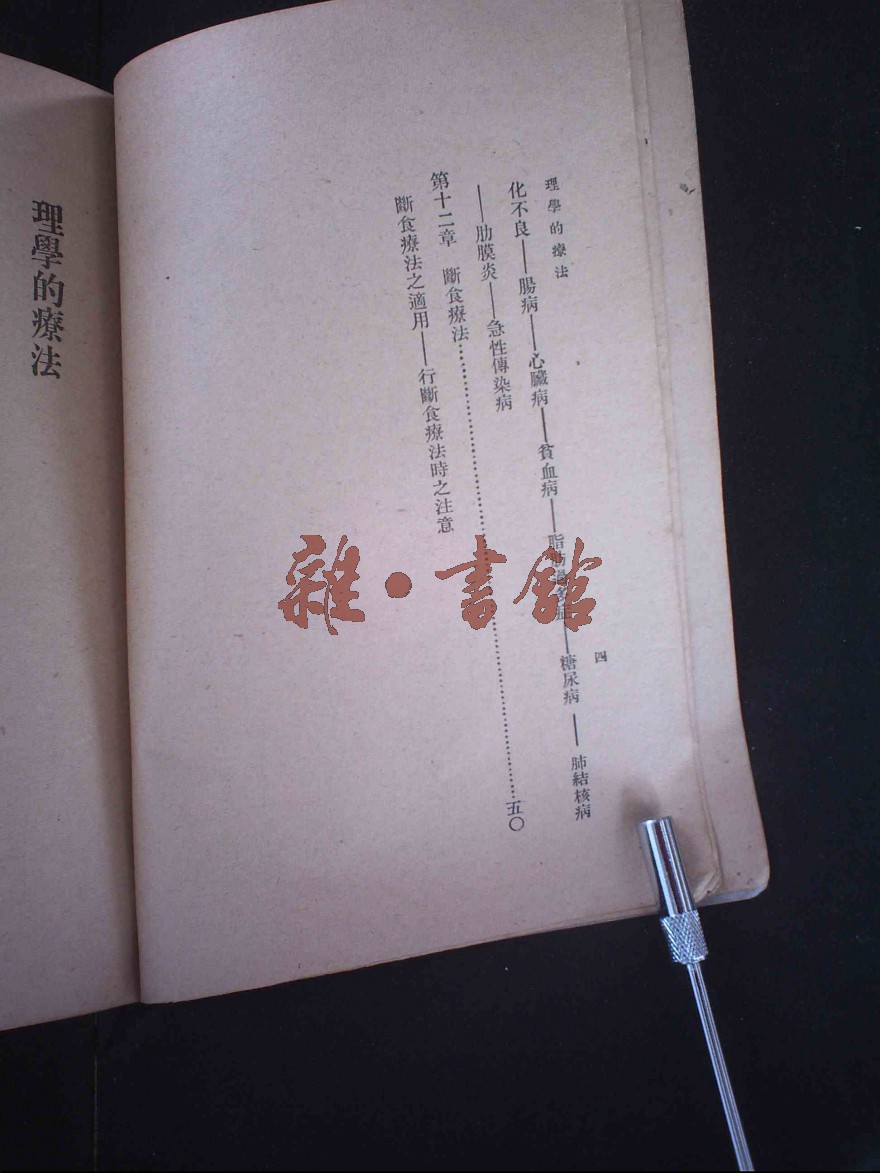 理學的療法
四
化不良——腸病——心臟病——貧血病——脂肪過多症——糖尿病——肺結核病
——肋膜炎——急性傳染病
第十二章　斷食療法……五〇
斷食療法之適用——行斷食療法時之注意
理學的療法
雜·書館